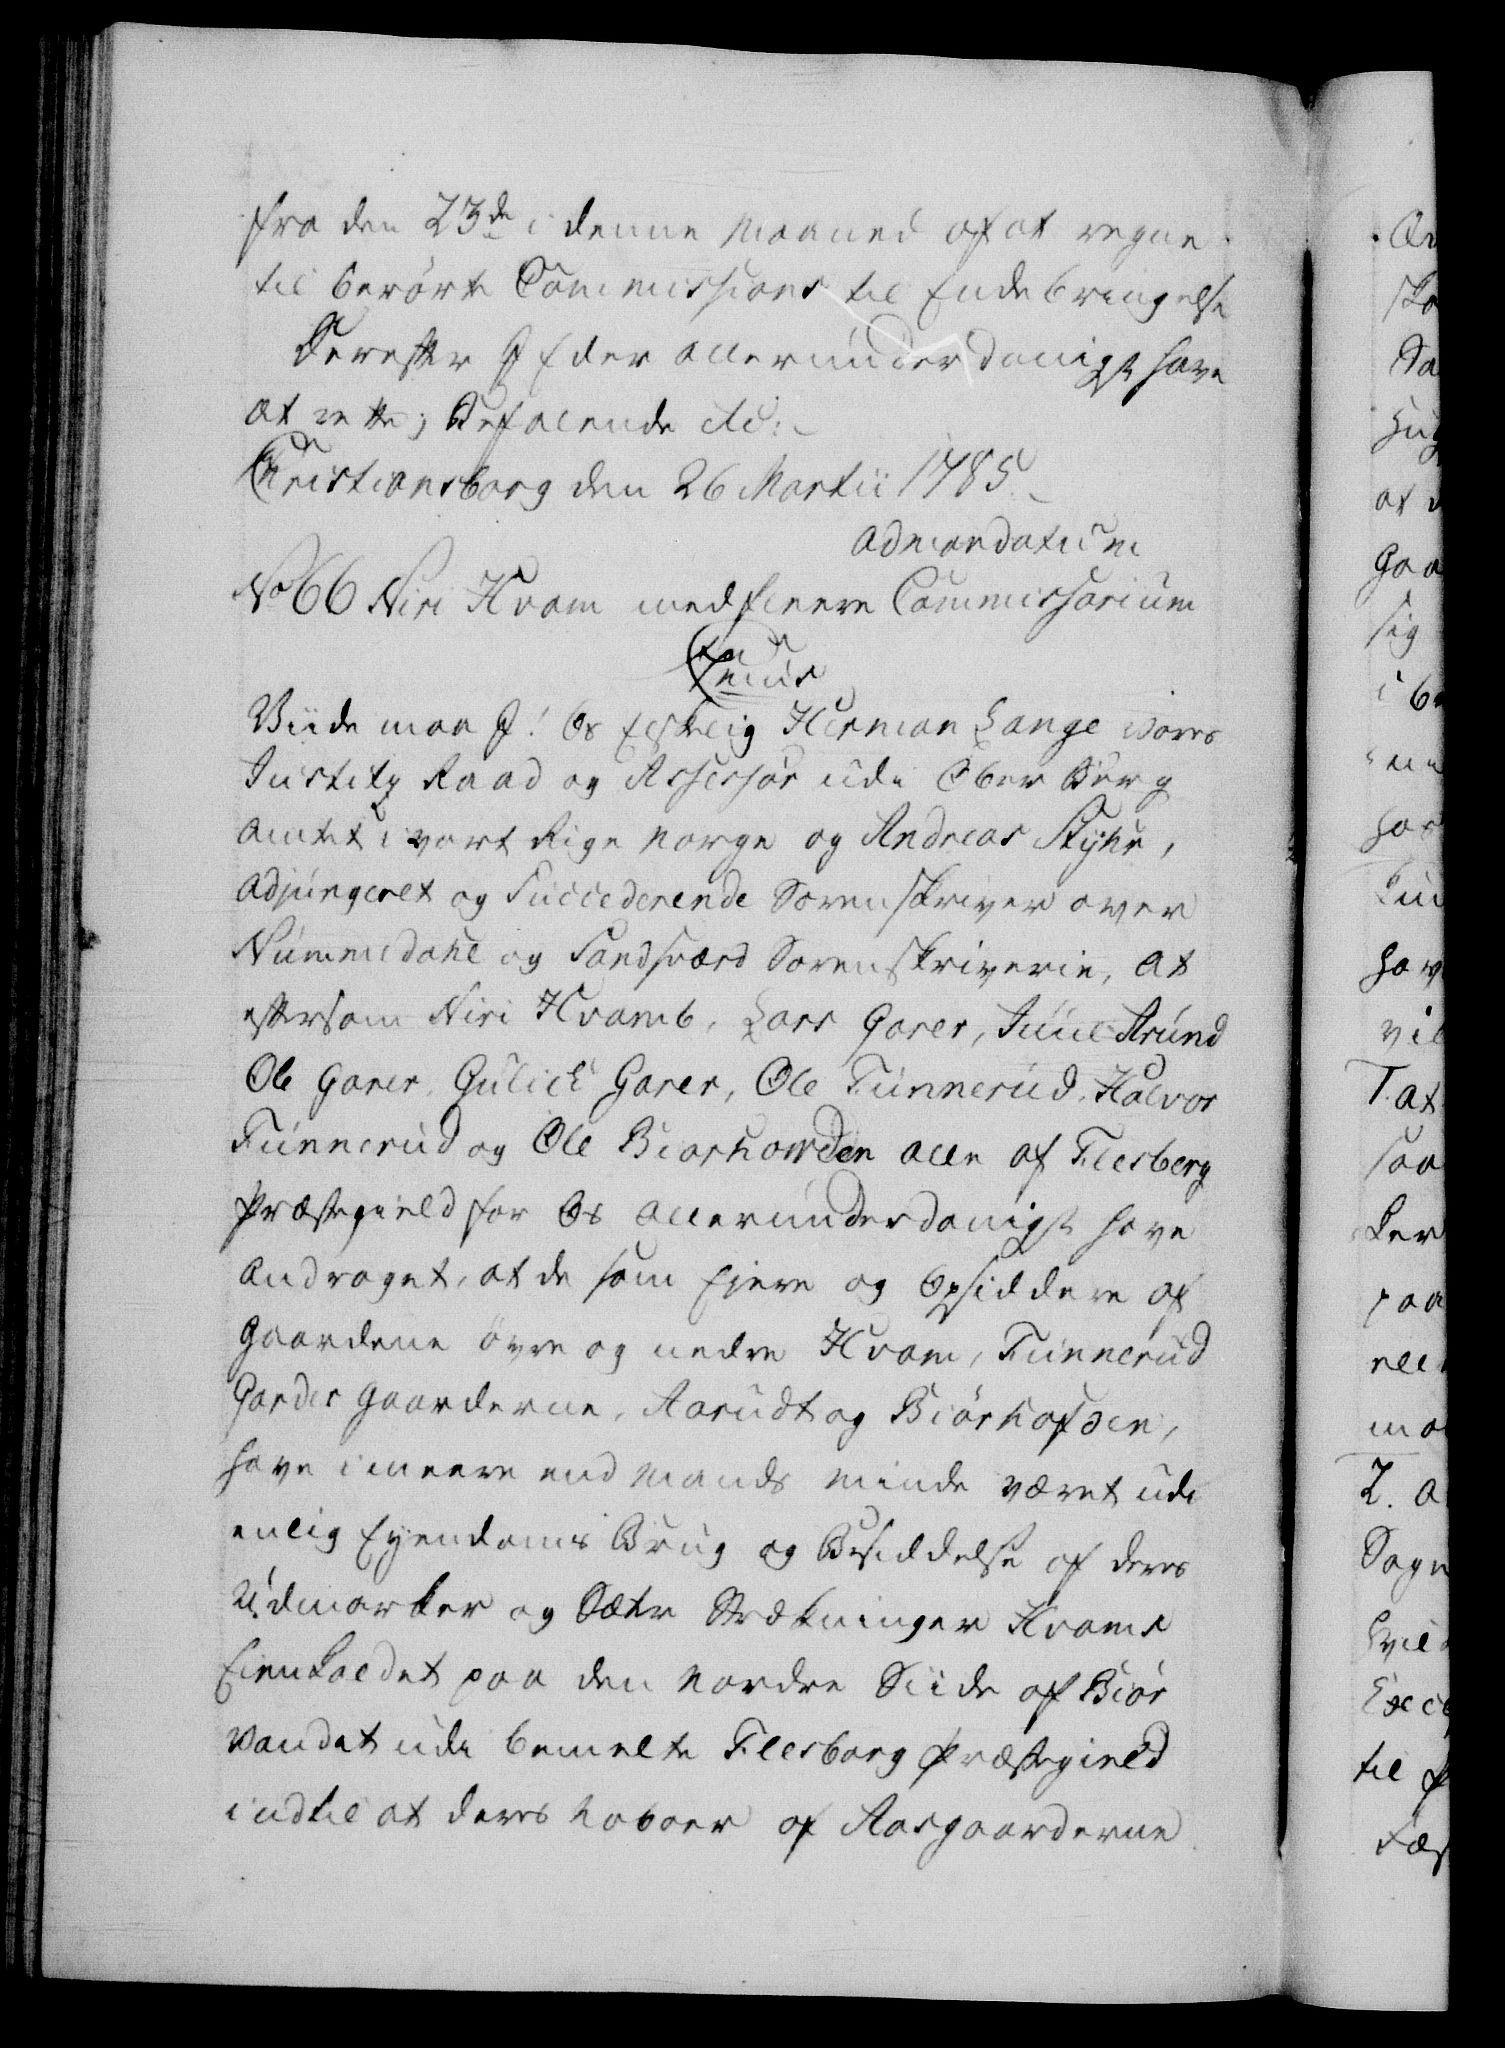 fra den 23de i denne Maaned af at regne
til berørte Commissions til Endebringelse
Derefter I Eder allerunderdanigst have
at rette; Befalende etc:
Christiansborg den 26 Martii 1785.
admandatum
No 66 Niri Hvam med fleere Commissorium
C7nus
Viide maa I! Os Elskelig Herman Lange vores
Justitz Raad og Assessor udi Ober Berg
amtet i vort Rige Norge og Andreas Skyhe,
adjungeret og Succederende Sorenskriver over
Nummedahl og Sandsværd Sorenskriverie, at
eftersom Niri Hvamb, Lars Garer, Juul Aarund
Ole Garer, Gulich Garer, Ole Tunnerud, Halvor
Tunnerud og Ole Biorhovden alle af Flesberg
Præstegield for Os allerunderdanigst have
andraget, at de som Ejere og Opsiddere af
Gaardene øvre og nedre Hvam, Tunnerud
Garder Gaarderne, Aarudt og Biørhofden,
have i meere end Mands minde været udi
enlig Eyendoms Brug og Besiddelse af deres
Udmarker og Sæter Strækninger Hvams
Eienkaldet paa den Nordre Siide af Biør
Vandet udi bemelte Flesberg Præstegield
indtil at deres Naboer af Aasgaarderne